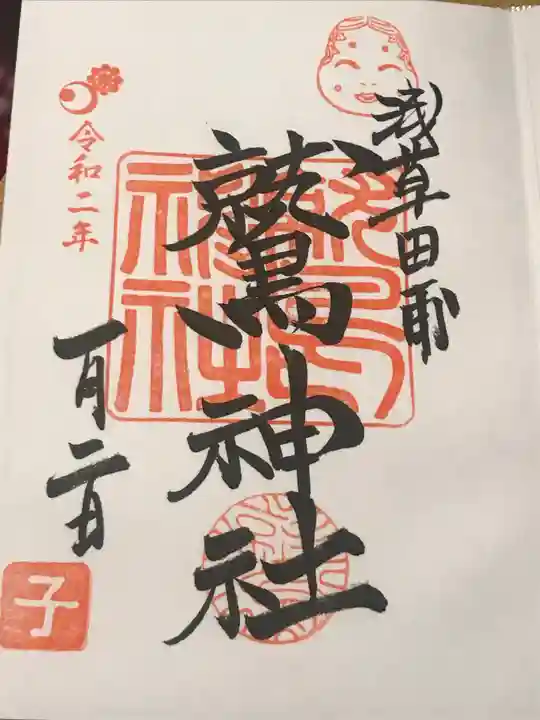 浅草田甫
鷲神社
令和二年
一月二日
子